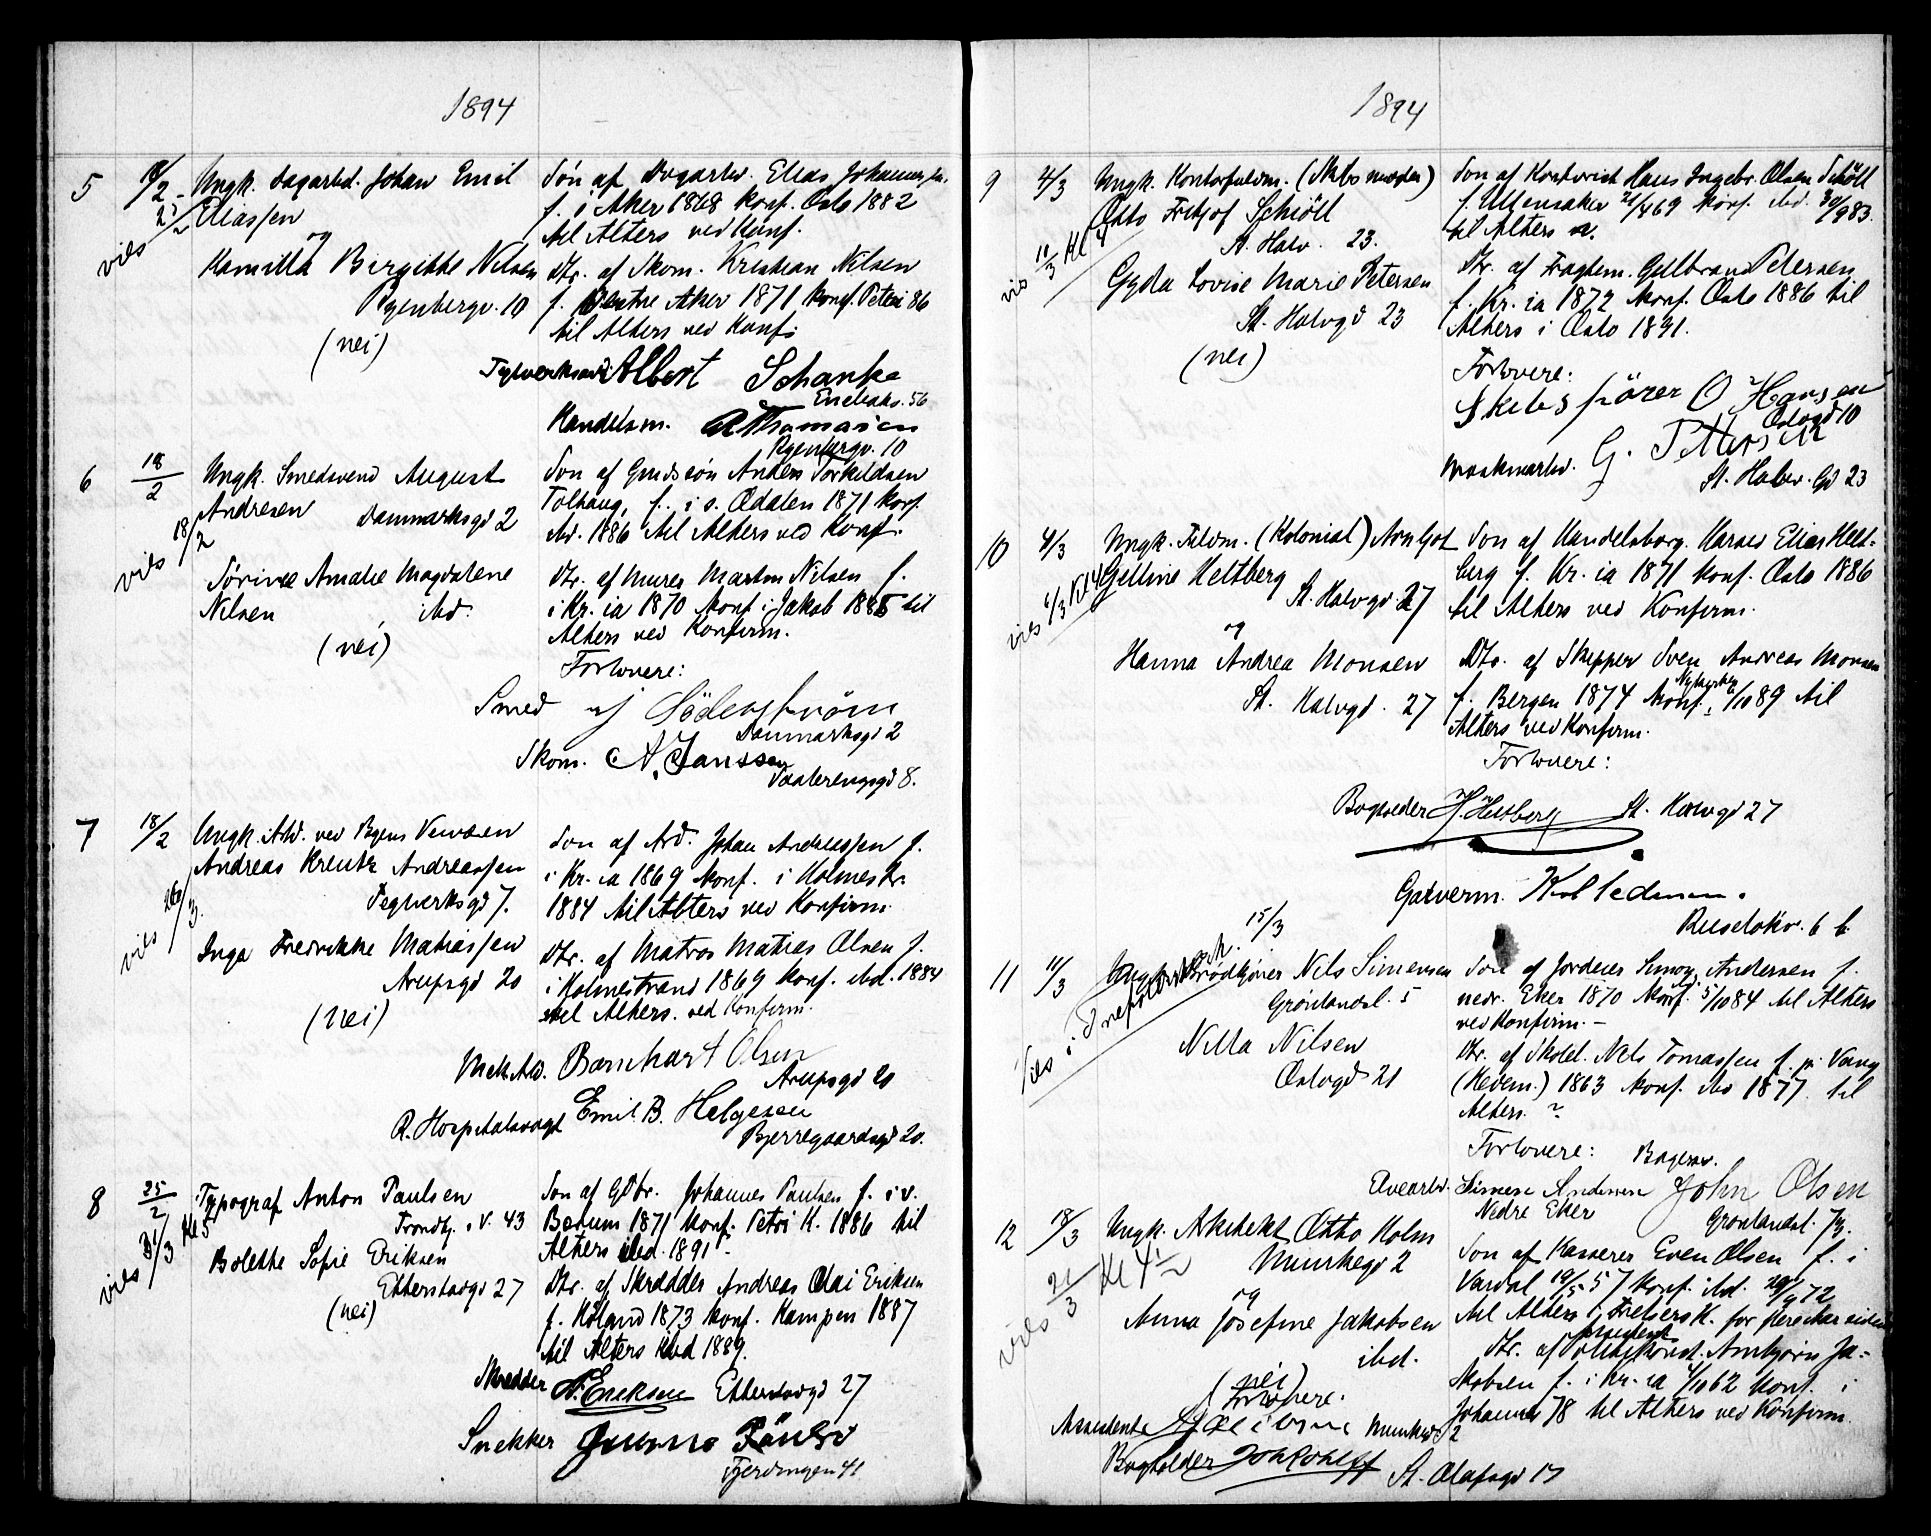 1894
5 18/2 Ungk. Dagarbd. Johan Emil
Eliassen
viet 25/2
og
Kamilla Birgitte Nilsen
Ryenbergv. 10
(nei)
Søn af Dagarbd. Elias Johannesen,
f. i Aker 1868 Konf. Oslo 1882
til Alters ved Konf.
Dtr. af Skom. Kristian Nilsen
f. Vestre Aker 1871 Konf. Petri 86
til Alters ved Konf:
Albert Schanke
Enebakv. 56
Handelsm. A Thomasen
Ryenbergv. 10
6 18/2 Ungk. Smedsvend August
Andresen Danmarksgd 2
viet 18/2
Sørine Amalie Magdalene
Nilsen ibd.
(nei)
Søn af Anders Torkildsen
Tolhaug, f. i s. Odalen 1871 konf.
ibd. 1886 til Alters ved Konf.
Dtr. af Murer Martin Nilsen f.
i Kr.ia 1870 konf. i Jakob 1885 til
Alters ved Konfirm.
Forlovere:
Smed Söderström
Danmarksgd 2
Skom. A. Janssen
Vaalerengsgd 8.
7 18/2 Ungk. Arbd. ved Byens Veivæsen
Andreas Kreutz Andreassen
Teglverksgd 7.
viet 26/3.
Inga Fredrikke Matiassen
Arupsgd 20
(nei)
Søn af Arb. Johan Andreassen f.
i Kr.ia 1869 konf. i Holmestr.
1884 til Alters ved Konfirm.
Dtr. af Matros Matias Olsen f.
i Holmestrand 1869 konf. ibd. 1884
til Alters. ved Konfirm.
Mek. Arb. Bernhart Olsen
Arupsgd 20
R. Hospitalsvogt Emil B. Helgesen
Bjerregaardsgd 20.
8 25/2 Typograf Anton Paulsen
Trondhj. v. 43
viet 31/3 Kl 5
Bolethe Sofie Eriksen
Etterstadgd 27
(nei)
Søn af Gbr. Johannes Paulsen f. i v.
Bærum 1871 konf. Petri K. 1886 til
Alters ibd. 1891
Dtr. af Skrædder Andreas Olai Eriksen
f. Høland 1873 konf. Kampen 1887
til Alters ibd 1889.
Skrædder A. Eriksen Etterstadgd 27
Snekker
Fjerdingen 41
1894
9 4/3 Ungk. Kontorfuldm. (Skibsmægler)
Osto Fritjof Schiöll
St. Halv. 23.
viet 10/3 Kl 4
Gyda Lovise Marie Petersen
St. Halvgd 23
(nei)
Søn af Kontorist Hans Ingebr. Olsen Schöll
f. Ullensaker 21/4 69 konf. ibd. 30/9 83.
til Alters
Dtr. af Fragtem. Gulbrand Petersen
f. Kr.ia 1872 konf. Oslo 1886 til
Alters i Oslo 1891.
Forlovere:
Skibsförer O Hansen
Oslogd 10
Maskinarbd. G. Pettersen
St. Halv. Gd 23
10 4/3 Ungk. Fuldm. (Kolonial) Arnljot
Gelline Heltberg
St. Halvgd 27
viet 6/3 Kl 4
og
Hanna Andrea Monsen
St. Halvgd. 27
Søn af Handelsborg. Elias Helt-
berg f. Kr.ia 1871 konf. Oslo 1886
til Alters ved Konfirm.
Dtr. af Skipper Sven Andreas Monsen
f. Bergen 1874 konf. Nykirken 6/10 89 til
Alters ved Konfirm.
Forlovere:
Bogholder H. Heltberg St. Halvgd 27
Ruseløkv. 6 b
11 11/3 Ungk. Brødkjører Nils Simensen
Grønlandsl. 5
viet i 15/3
Nilla Nilsen
Oslogd 21
Søn af Jordeier Simon Andersen f.
nedr. Eker 1870 konf. 5/10 84 til Alters
ved Konfirm. –
Dtr. af Skolel. Nils Tomassen f. p. Vang
(Hedem.) 1863 konf. ibd 1877. til
Alters. ?
Forlovere:
Simen Andersen
Nedre Eker
John Olsen
Grønlandsl. 73.
12 18/3 Ungk. Arkitekt Otto Holm
Munkegd 2
viet 21/3 Kl 4½
og
Anna Josefine Jakobsen
ibd.
(nei)
Søn af Kasserer Even Olsen f. i
Vardal 19/5 57 konf. ibd. 29/9 72
til Alters i Frelsers K. for flere Aar siden
Dtr. af Arnbjørn Ja-
kobsen f. i Kr.ia 4/10 62 konf. i
Johannes 78 til Alters ved Konfirm.
Forlovere:
Bogholder Joh Rohlff St. Olafsgd 17